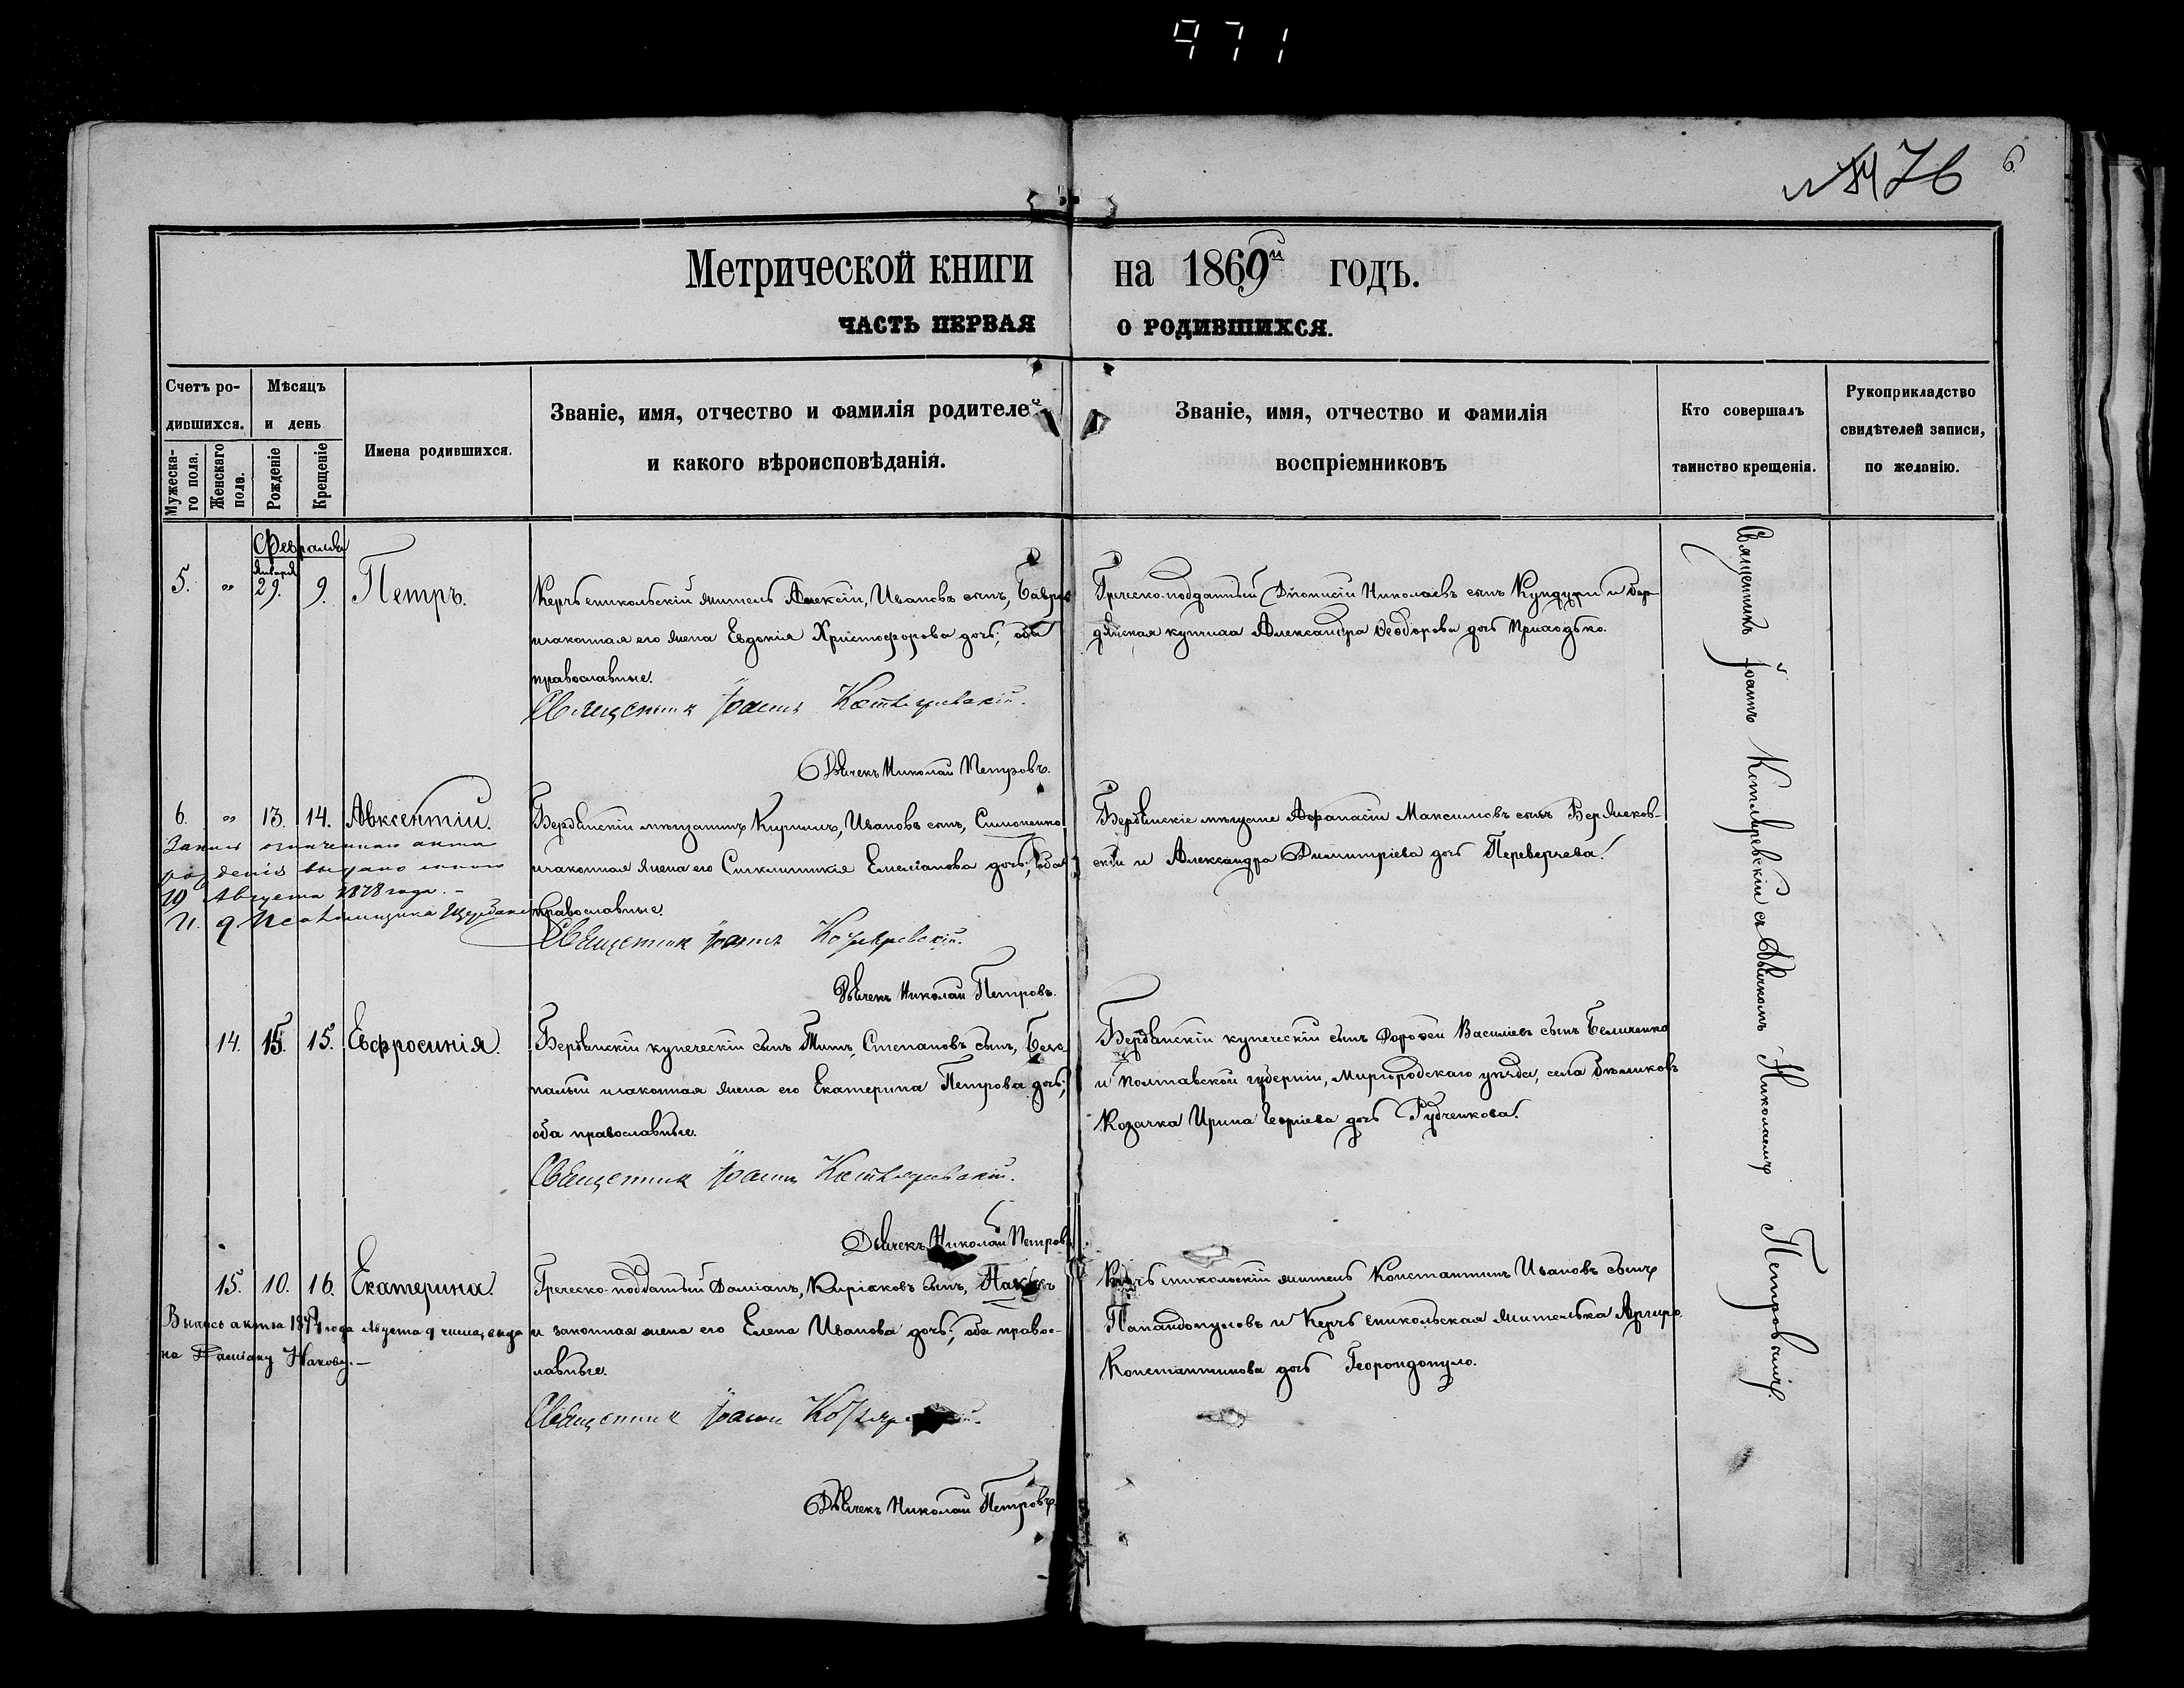 971
76
6
Метрической книги на 1869й годъ.
ЧАСТЬ ПЕРВАЯ О РОДИВШИХСЯ.
Счетъ ро-
дившихся.
Мужеска-
го пола.
Женскаго
пола.
Мѣсяцъ
и день
Рожденіе
Крещеніе
Имена родившихся.
Званіе, имя, отчество и фамилія родителей
и какого вѣроисповѣданія.
Званіе, имя, отчество и фамилія
воспріемниковъ
Кто совершалъ
таинство крещенія.
Рукоприкладство
свидѣтелей записи,
по желанію.
Февраля
Января
5. " 29. 9. Петръ.
Керчьеникольскій житель Алексій, Ивановъ сынъ,
изаконная его жена Евдокія Христофорова дочь; оба
православные.
Священник Іоаннъ Котляревскій.
Дьячекъ Николай Петровъ.
Греческо-подданный Діонисій Николаевъ сынъ Кундури и Бер-
дянская купчиха Александра Ѳеодорова дочь Приходько.
6. " 13. 14. Авксентій.
Запись означеннаго акта
выдано
19 Августа 1878 года. -
И. д. Псаломщика
Бердянскій мѣщанинъ Кириллъ, Ивановъ сынъ, Симоненко
изаконная жена его Синклитикія Емеліанова дочь; оба
православные.
Священник Іоаннъ Котляревскій.
Дьячекъ Николай Петровъ.
Бердянскіе мѣщане Афанасій Максимовъ сынъ Вержиков-
скій и Александра Димитріева дочь Переверзева.
14. 15. 15. Евфросинія.
Бердянскій купеческій сынъ Титъ, Степановъ сынъ, Безе-
палый изаконная жена его Екатерина Петрова дочь;
оба православные.
Священник Іоаннъ Котляревскій.
Дьячекъ Николай Петровъ.
Бердянскій купеческій сынъ Дорофей Василіевъ сынъ Величенко
и Полтавской губерніи, Миргородскаго уѣзда, села Бѣликовъ
Козачка Ирина Георгіева дочь Рудченкова.
15. 10. 16. Екатерина.
Выпись акта года Августа 9 числа,
на Даміану Накову. —
Греческо-подданный Даміанъ, Киріаковъ сынъ,
и законная жена его Елена Иванова дочь; оба правос-
лавные.
Священник Іоаннъ
Дьячекъ Николай Петровъ.
Керчьеникольскій житель Константинъ Ивановъ сынъ
Папандопуловъ и Керчьеникольская жителька Аргиро
Константинова дочь Георондопуло.
Священникъ Іоаннъ Котляревскій съ Дьячкомъ Николаемъ Петровымъ.